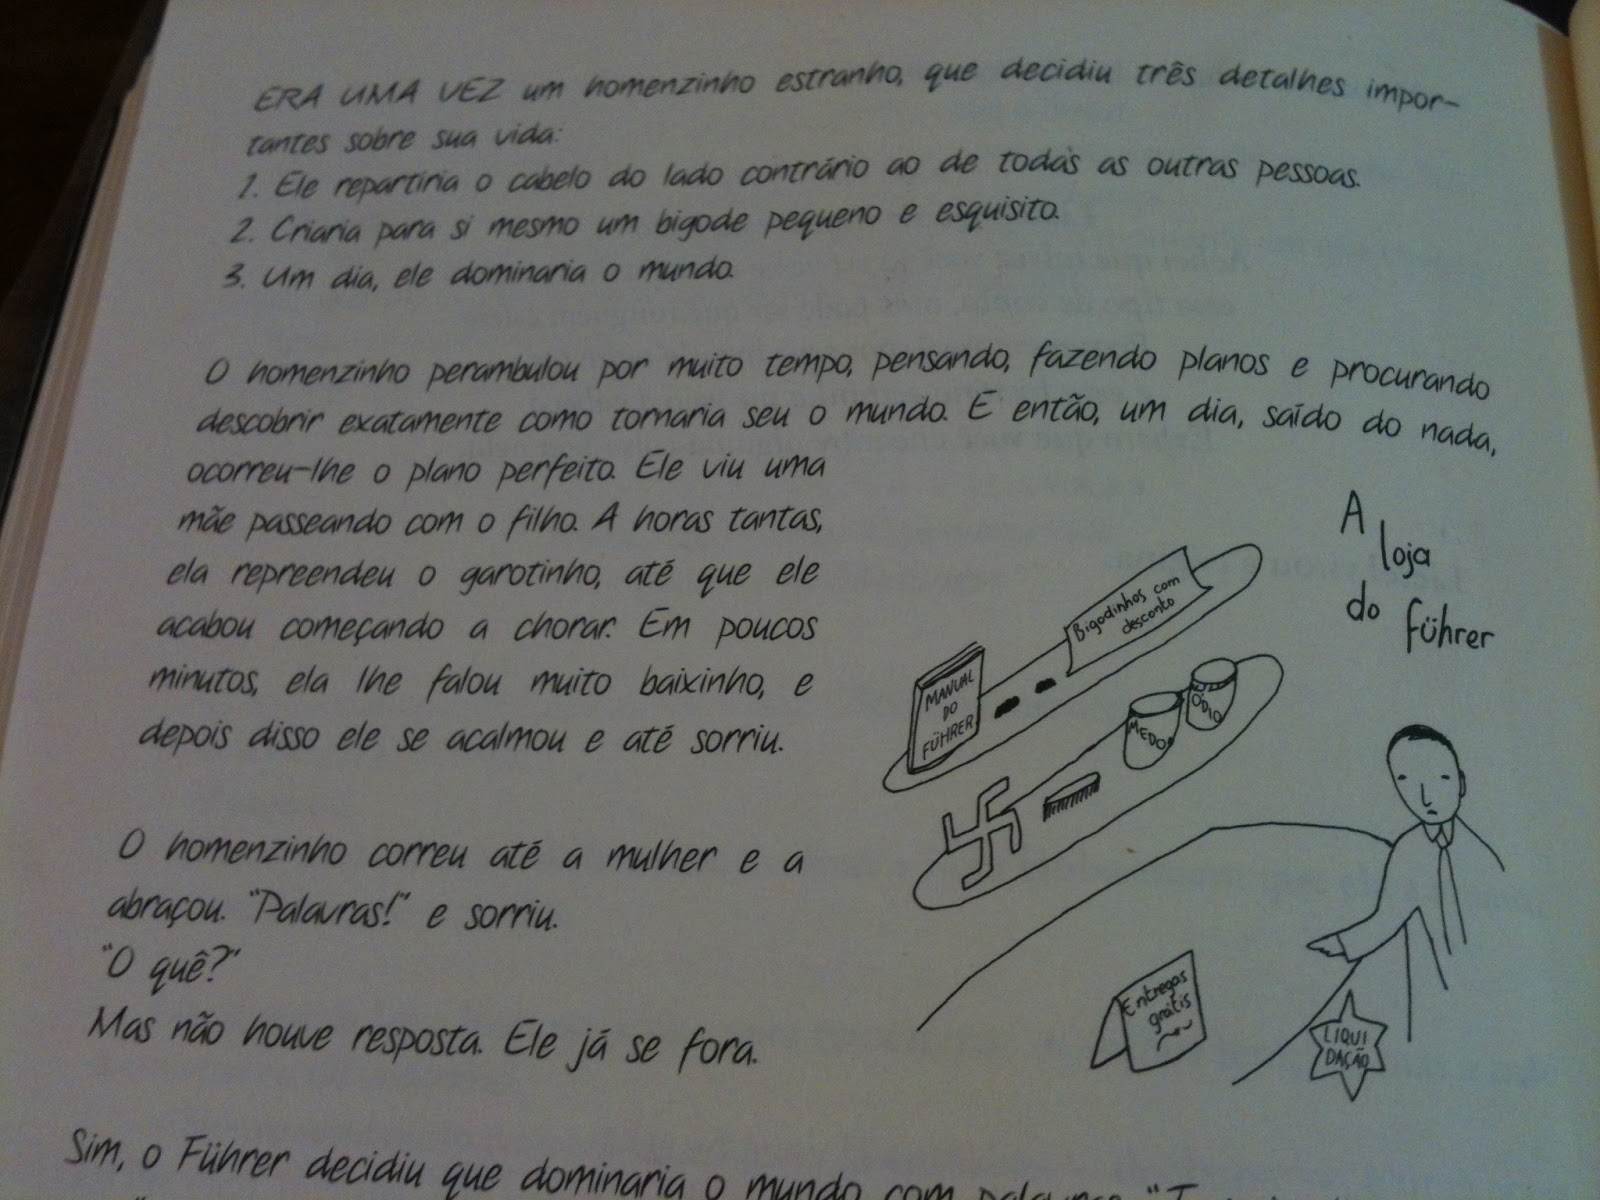 ERA UMA VEZ um homenzinho estranho, que decidiu três detalhes impor-
tantes sobre sua vida:
1. Ele repartiria o cabelo do lado contrário ao de todas as outras pessoas.
2. Criaria para si mesmo um bigode pequeno e esquisito.
3. Um dia, ele dominaria o mundo.
O homenzinho perambulou por muito tempo, pensando, fazendo planos e procurando
descobrir exatamente como tornaria seu o mundo. E então, um dia, saído do nada,
ocorreu-lhe o plano perfeito. Ele viu uma
mãe passeando com o filho. A horas tantas,
ela repreendeu o garotinho, até que ele
acabou começando a chorar. Em poucos
minutos, ela lhe falou muito baixinho, e
depois disso ele se acalmou e até sorriu.
O homenzinho correu até a mulher e a
abraçou. "Palavras!" e sorriu.
"O quê?"
Mas não houve resposta. Ele já se fora.
A
loja
do
Führer
Bigodinhos com
desconto
MANUAL
DO
FÜHRER
MEDO
ÓDIO
Entregas
grátis
LIQUI
DAÇÃO
Sim, o Führer decidiu que dominaria o mundo com